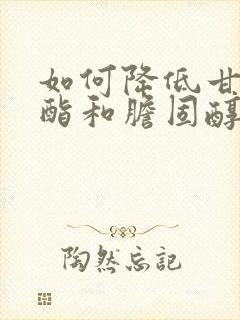 如何降低甘
酯和膽固醇
陶然忘记